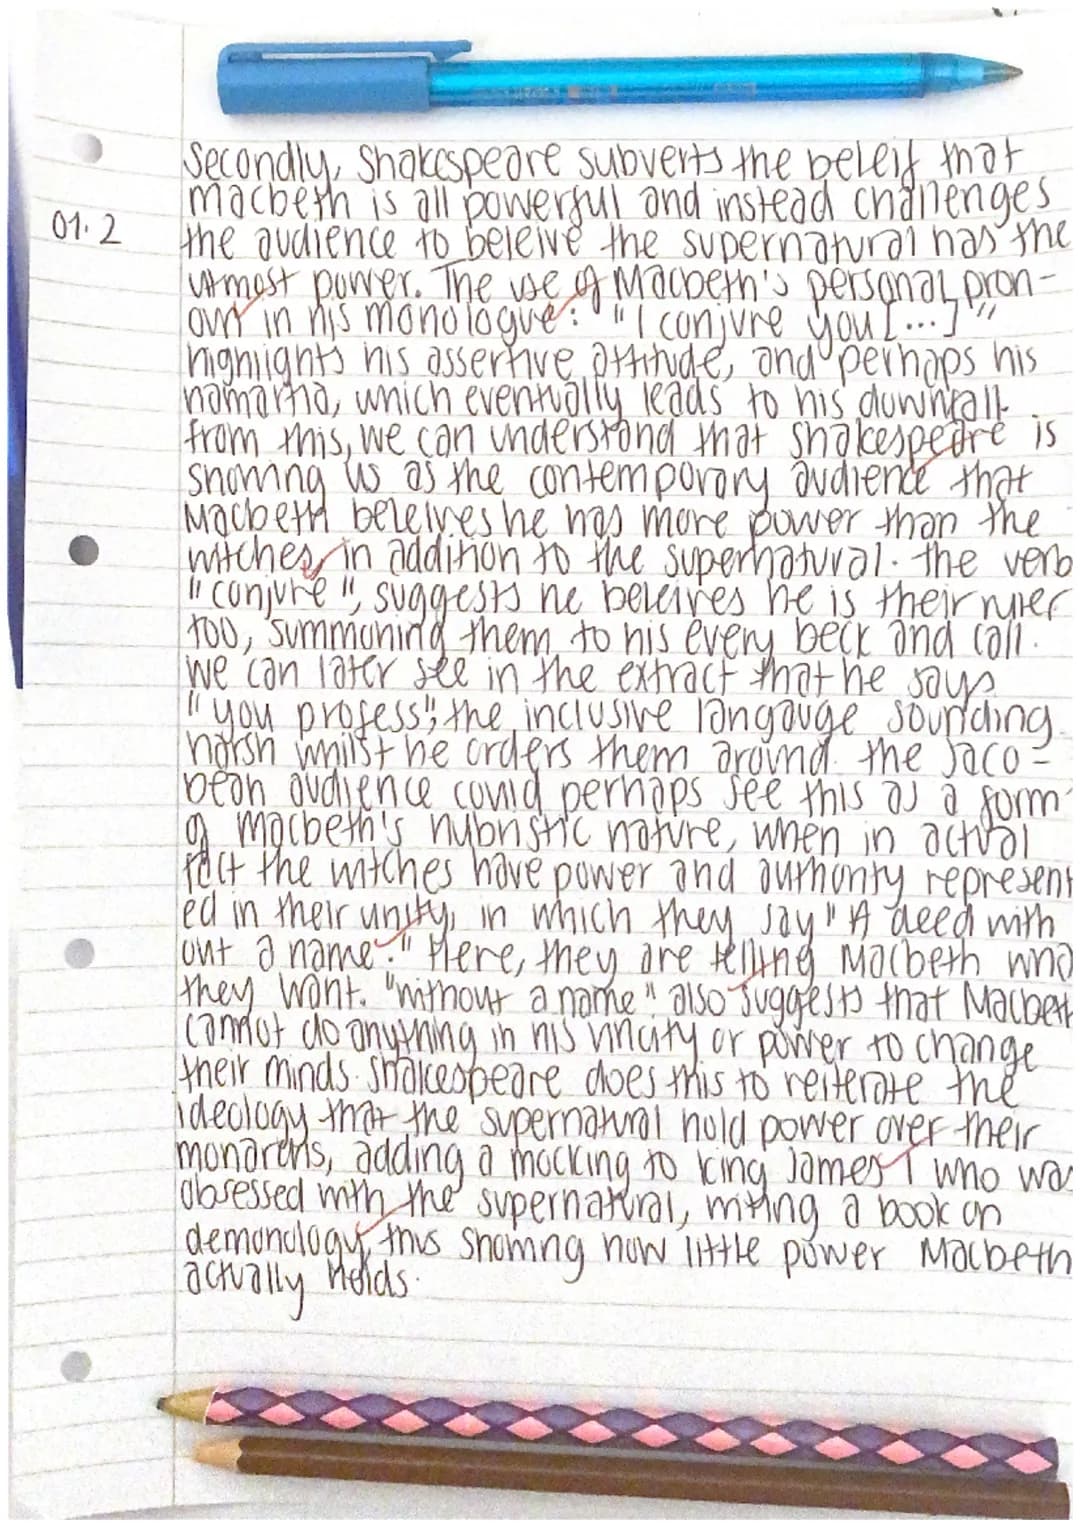 Secondly, Shakespeare subverts the beleif that
01.2
Macbeth is all powerful and instead challenges
the audience to beleive the supernatural has the
utmost power. The use of Macbeth's personal pron-
oun in his monologue: "I conjure you [...]"
highlights his assertive attitude, and perhaps his
hamartia, which eventually leads to his downfall.
from this, we can understand that Shakespeare is
showing us as the contemporary audience that
Macbeth beleives he has more power than the
witches, in addition to the supernatural. The verb
"conjure", suggests he beleives he is their ruler
too, summoning them to his every beck and call.
We can later see in the extract that he says
"you profess"; the inclusive langauge sounding
harsh whilst he orders them around. The Jaco-
bean audience could perhaps see this as a form
of Macbeth's hubristic nature, when in actual
fact the witches have power and authority represent
ed in their unity, in which they say "A deed with
out a name." Here, they are telling Macbeth who
they want. "without a name" also suggests that Macbeth
cannot do anything in his vincity or power to change
their minds. Shakespeare does this to reiterate the
ideology that the supernatural hold power over their
monarchs, adding a mocking to King James I who was
obsessed with the supernatural, writing a book on
demonology, thus showing how little power Macbeth
actually holds.